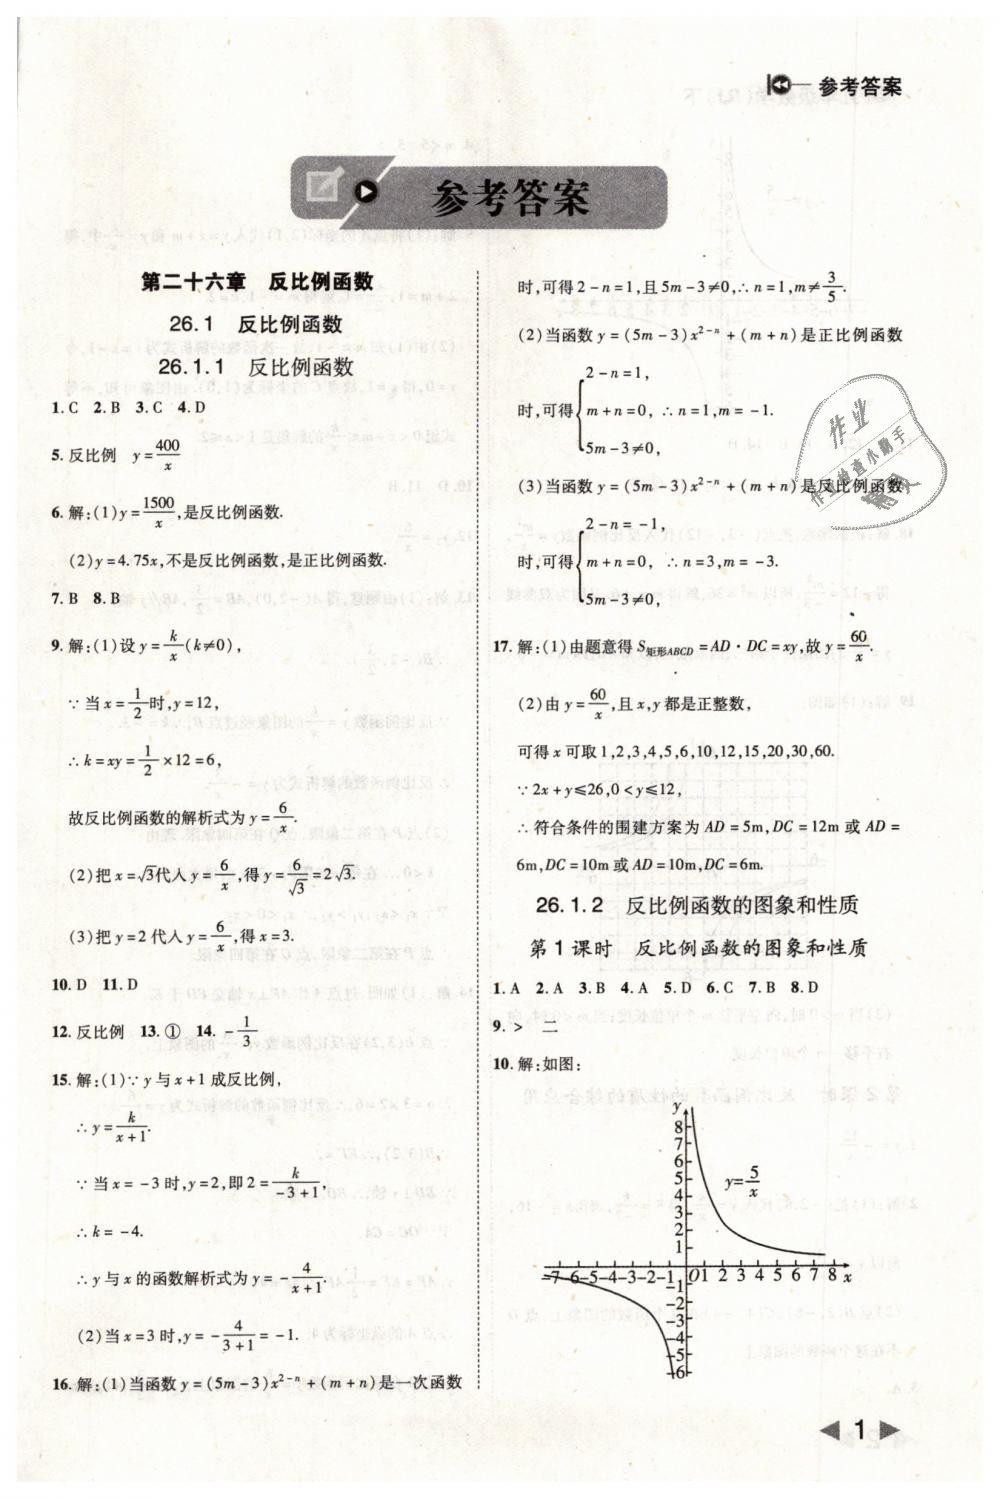 参考答案
参考答案
第二十六章 反比例函数
26.1 反比例函数
26.1.1 反比例函数
1.C 2.B 3.C 4.D
5.反比例 y=400/x
6.解:(1)y=1500/x,是反比例函数.
(2)y=4.75x,不是反比例函数,是正比例函数.
7.B 8.B
9.解:(1)设y=k/x(k≠0),
∵当x=1/2时,y=12,
∴k=xy=1/2×12=6,
故反比例函数的解析式为y=6/x.
(2)把x=√3代人y=6/x,得y=6/√3=2√3.
(3)把y=2代人y=6/x,得x=3.
10.D 11.D
12.反比例 13.① 14.-1/3
15.解:(1)∵y与x+1成反比例,
∴y=k/(x+1).
∵当x=-3时,y=2,即2=k/(-3+1),
∴k=-4.
∴y与x的函数解析式为y=-4/(x+1).
(2)当x=3时,y=-4/(3+1)=-1.
16.解:(1)当函数y=(5m-3)x²⁻ⁿ+(m+n)是一次函数
时,可得2-n=1,且5m-3≠0,∴n=1,m≠3/5.
(2)当函数y=(5m-3)x²⁻ⁿ+(m+n)是正比例函数
2-n=1,
时,可得{m+n=0, ∴n=1,m=-1.
5m-3≠0,
(3)当函数y=(5m-3)x²⁻ⁿ+(m+n)是反比例函数
2-n=-1,
时,可得{m+n=0, ∴n=3,m=-3.
5m-3≠0,
17.解:(1)由题意得S矩形ABCD=AD·DC=xy,故y=60/x.
(2)由y=60/x,且x,y都是正整数,
可得x可取1,2,3,4,5,6,10,12,15,20,30,60.
∵2x+y≤26,0<y≤12,
∴符合条件的围建方案为AD=5m,DC=12m或AD=
6m,DC=10m或AD=10m,DC=6m.
26.1.2 反比例函数的图象和性质
第1课时 反比例函数的图象和性质
1.A 2.A 3.B 4.A 5.D 6.C 7.B 8.D
9.> 二
10.解:如图:
y
8
7
6
5
4
3
2
1
y=5/x
-7-6-5-4-3-2-1 O1 2 3 4 5 6 7 8 x
-1
-2
-3
-4
-5
-6
1
作业
作业检查小助手